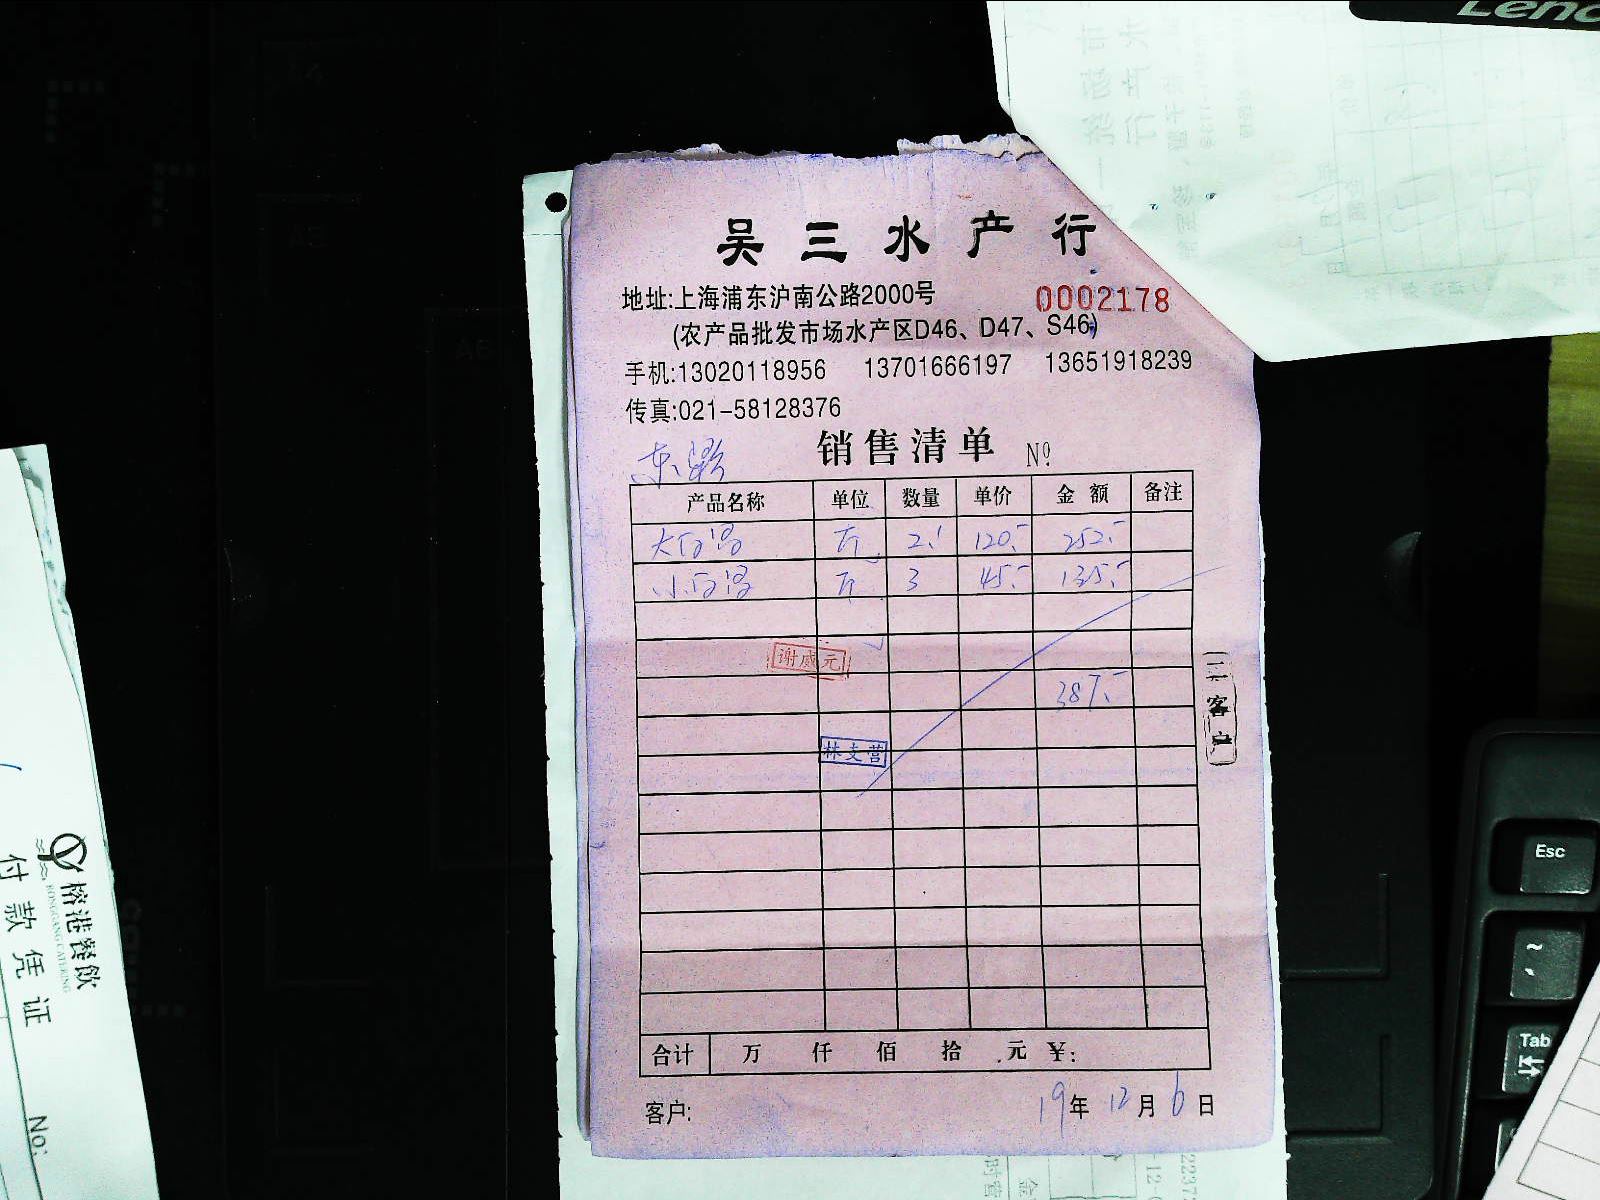 吴三水产行
地址:上海浦东沪南公路2000号
0002178
(农产品批发市场水产区D46、D47、S46)
手机:13020118956 13701666197 13651918239
传真:021-58128376
销售清单 Nº
产品名称 单位 数量 单价 金额 备注
大 斤 2.1 120.- 252.-
小 斤 3 45.- 135.-
谢威元
387.-
林支营
二客户
合计 万 仟 佰 拾 元 ¥:
客户: 19年12月6日
榕港餐飲
RONGGANG CATERING
付款凭证
No:
Leno
Esc
~
Tab